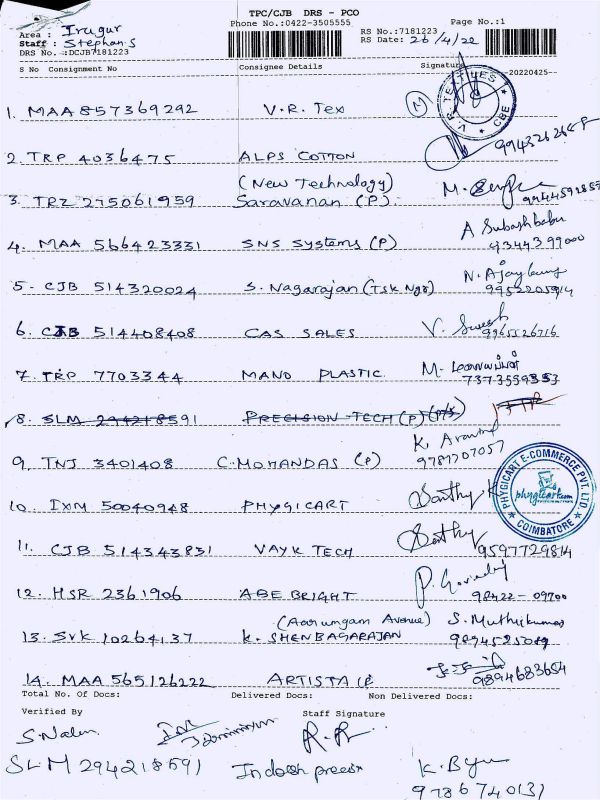 TPC/CJB DRS - PCO
Phone No.:0422-3505555 Page No.:1
Area : Irugur
RS No.:7181223
Staff : Stephan S
RS Date: 26/4/22
DRS No. :DCJB7181223
S No Consignment No Consignee Details Signature
-20220425-
1. MAA 857369292 V.R. Tex M
V.R. TEXTILES CBE
2. TRP 4036475 ALPS COTTON
(New Technology)
3. TRZ 275061959 Saravanan (P).
4. MAA 566423331 SNS Systems (P) A Subashbabu
4344399000
5. CJB 514320024 S. Nagarajan (Tsk Ngr) N. Ajaykumar
9952205914
6. CJB 514408408 CAS SALES V. Suresh
9965526716
7. TRP 7703344 MANO PLASTIC. M.
7373559353
8. SLM 294218591 PRECISION TECH (P)
9. TNJ 3401408 C. MOHANDAS (P) K. Aravind
9787707057
10. IXM 50040948 PHYGICART Santhy
PHYGICART E-COMMERCE PVT. LTD. phygicart.com COIMBATORE
11. CJB 514343831 VAYK TECH Santhy
9597729814
12. HSR 2361906 ABE BRIGHT P. Govindraj
98422-09700
(Aarumgam Avenue) S. Muthukumar
13. SVK 10264137 K. SHENBAGARAJAN 9894525089
14. MAA 565126222 ARTISTA (P)
9894683654
Total No. Of Docs: Delivered Docs: Non Delivered Docs:
Verified By Staff Signature
S. Nalen
SLM 294218591 Indosh K. Byu
9786740131